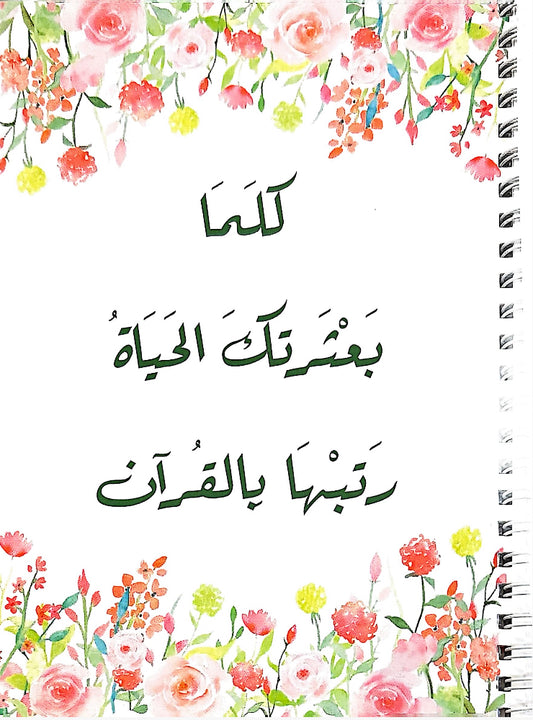 كلَما
بَعْثَرتكَ الحَيَاةُ
رَتبْهَا بالقُرآن